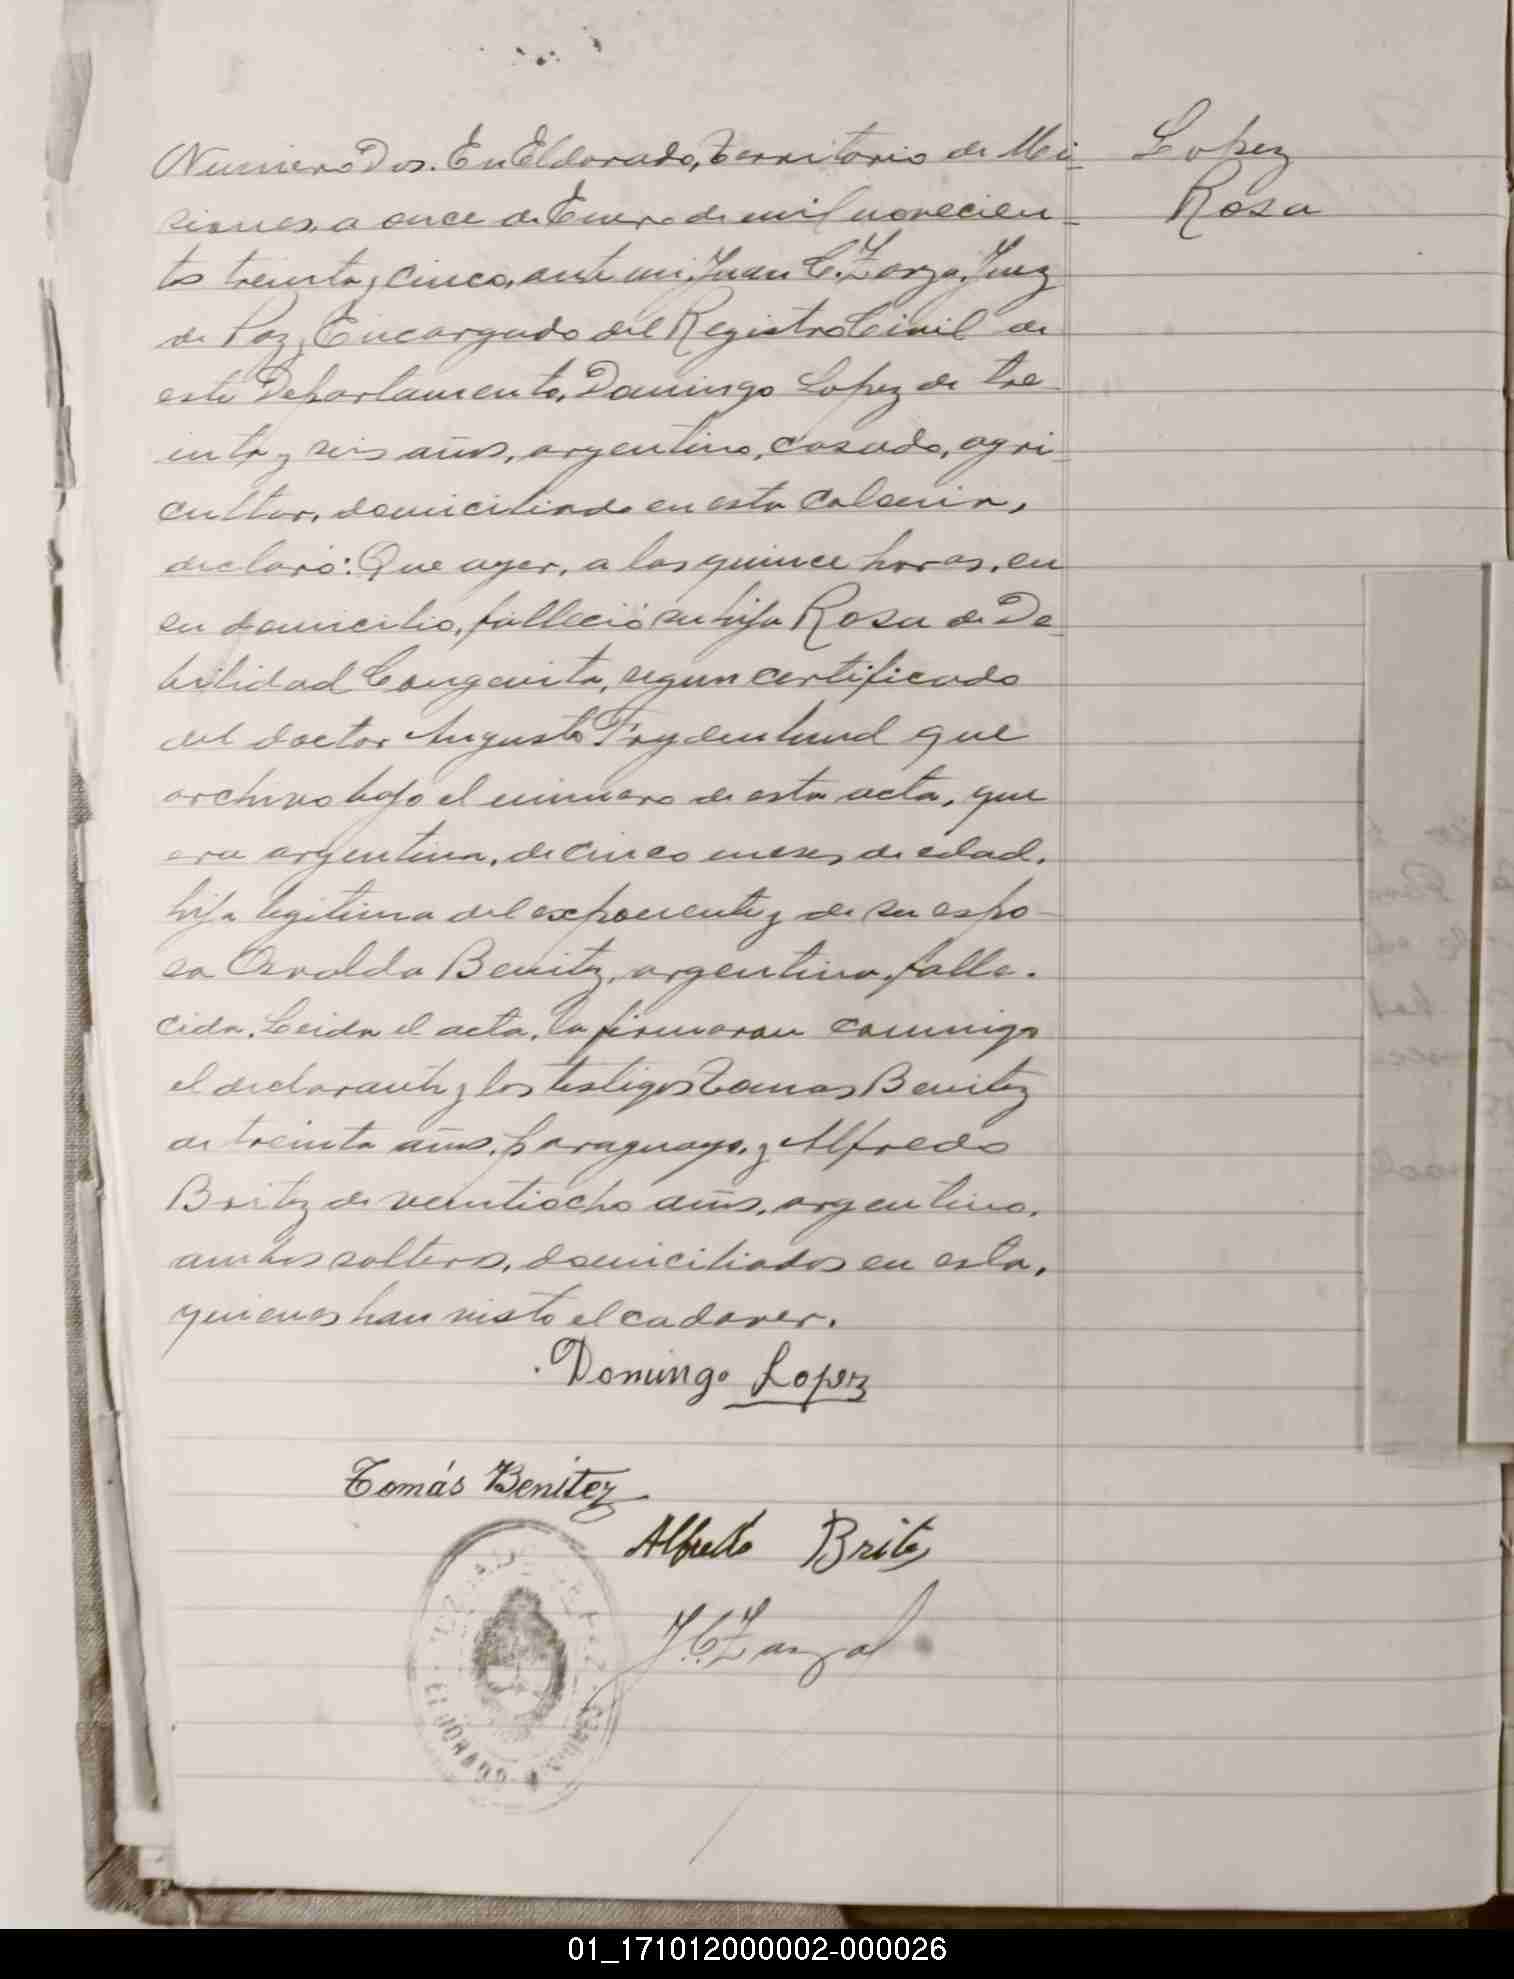 Numero Dos. En Eldorado, Territorio de Mi-
siones, a once de Enero de mil novecien-
tos treinta y cinco, ante mi, Juan C. Zarza, Juez
de Paz, Encargado del Registro Civil de
este Departamento, Domingo Lopez de tre-
inta y seis años, argentino, casado, agri-
cultor, domiciliado en esta Colonia,
declaró: Que ayer, a las quince horas, en
su domicilio, falleció su hija Rosa de De-
bilidad Congenita, segun certificado
del doctor Augusto Frydenlund que
archivo bajo el numero de esta acta, que
era argentina, de cinco meses de edad,
hija legitima del exponente y de su espo-
sa Osvalda Benitez, argentina, falle-
cida. Leida el acta, la firmaron conmigo
el declarante y los testigos Tomas Benitez
de treinta años, paraguayo, y Alfredo
Britez de veintiocho años, argentino,
ambos solteros, domiciliados en esta,
quienes han visto el cadaver.
Domingo Lopez
Tomás Benitez
Alfredo Britez
J. C. Zarza
Lopez
Rosa
JUZGADO DE PAZ
ELDORADO
01_171012000002-000026